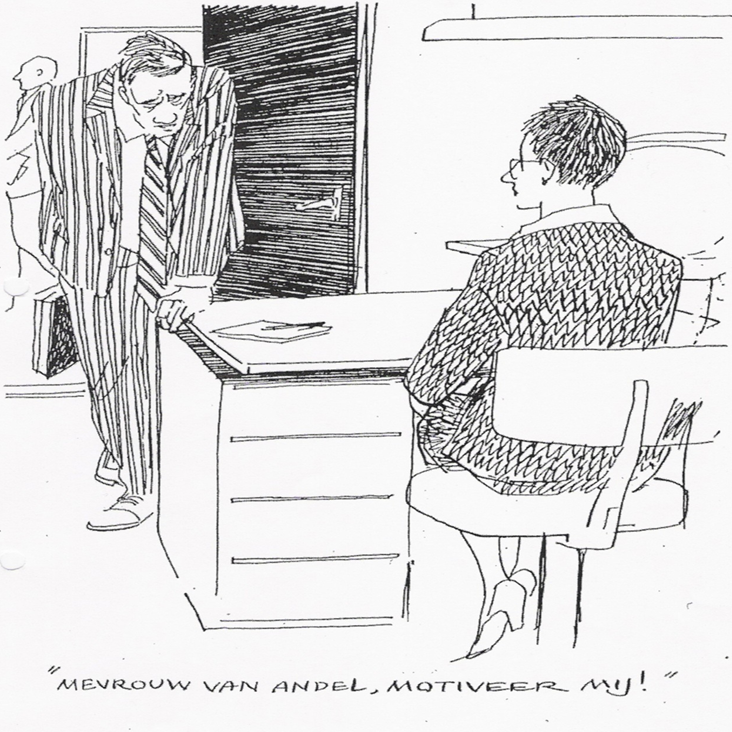 "MEVROUW VAN ANDEL, MOTIVEER MIJ!"